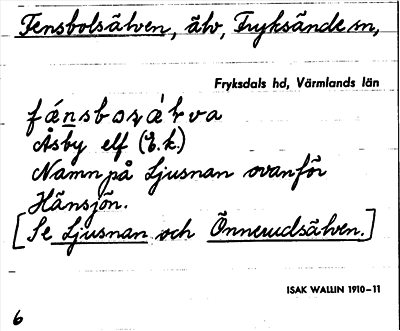 Fensbolsälven, älv, Fryksände sn,
Fryksdals hd, Värmlands län
Åsby elf (E.k.)
Namn på Ljusnan ovanför
Hänsjön.
[Se Ljusnan och Önnerudsälven.]
ISAK WALLIN 1910–11
6